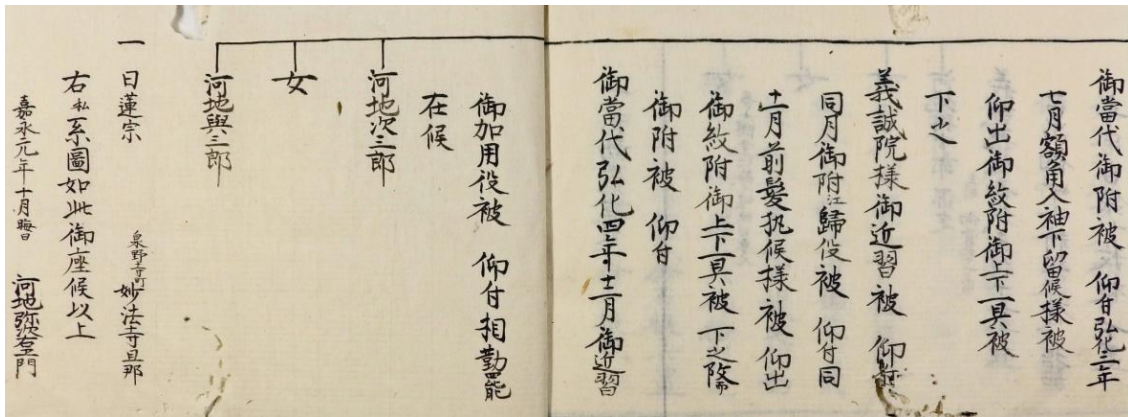 御當代御附被 仰付弘化三年
七月額角入袖下留候様被
仰出御紋附御上下一具被
下之
義誠院様御近習被 仰付
同月御附江歸役被 仰付同
十一月前髪執候様被 仰出
御紋附御上下一具被 下之
御附被 仰付
御當代弘化四年十二月御近習
御加用役被 仰付相勤罷
在候
河地次三郎
女
河地與三郎
一 日蓮宗 泉野寺町妙法寺旦那
右私系圖如此御座候以上
嘉永元年十月晦日 河地弥左衛門